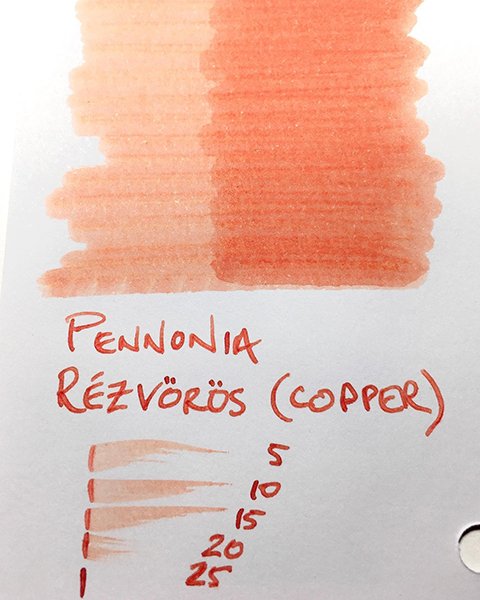 PENNONIA
RÉZVÖRÖS (COPPER)
5
10
15
20
25